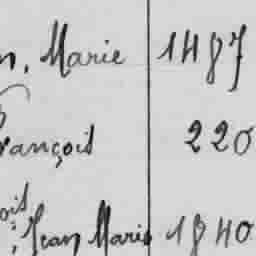 n, Marie 1487
rançois 220
ois
, Jean Marie 1840